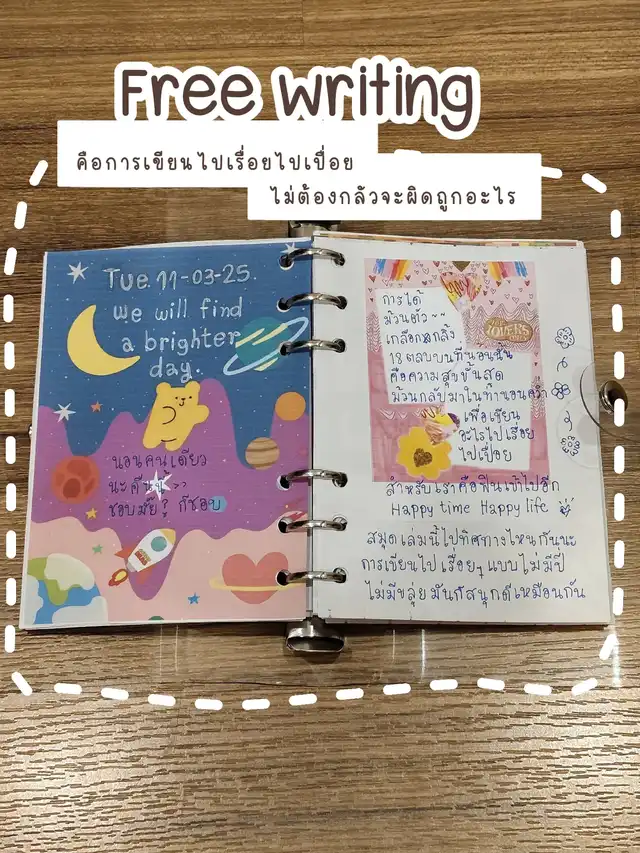 Free Writing
คือการเขียนไปเรื่อยไปเปื่อย
ไม่ต้องกลัวจะผิดถูกอะไร
Tue. 11-03-25.
We will find
a brighter
day.
นอนคนเดียว
นะคืนนี้
ชอบมั๊ย? ก็ชอบ
การได้
ม้วนตัว ~~
เกลือกกลิ้ง
18 ตลบบนที่นอนนั้น
คือความสุขขั้นสุด
ม้วนกลับมาในท่านอนคว่ำ
เพื่อเขียน
อะไรไปเรื่อย
ไปเปื่อย
LOVERS
สำหรับเราคือฟินเข้าไปอีก
Happy time Happy life
สมุดเล่มนี้ไปทิศทางไหนกันนะ
การเขียนไปเรื่อยๆ แบบไม่มีปี่
ไม่มีขลุ่ย มันก็สนุกดีเหมือนกัน